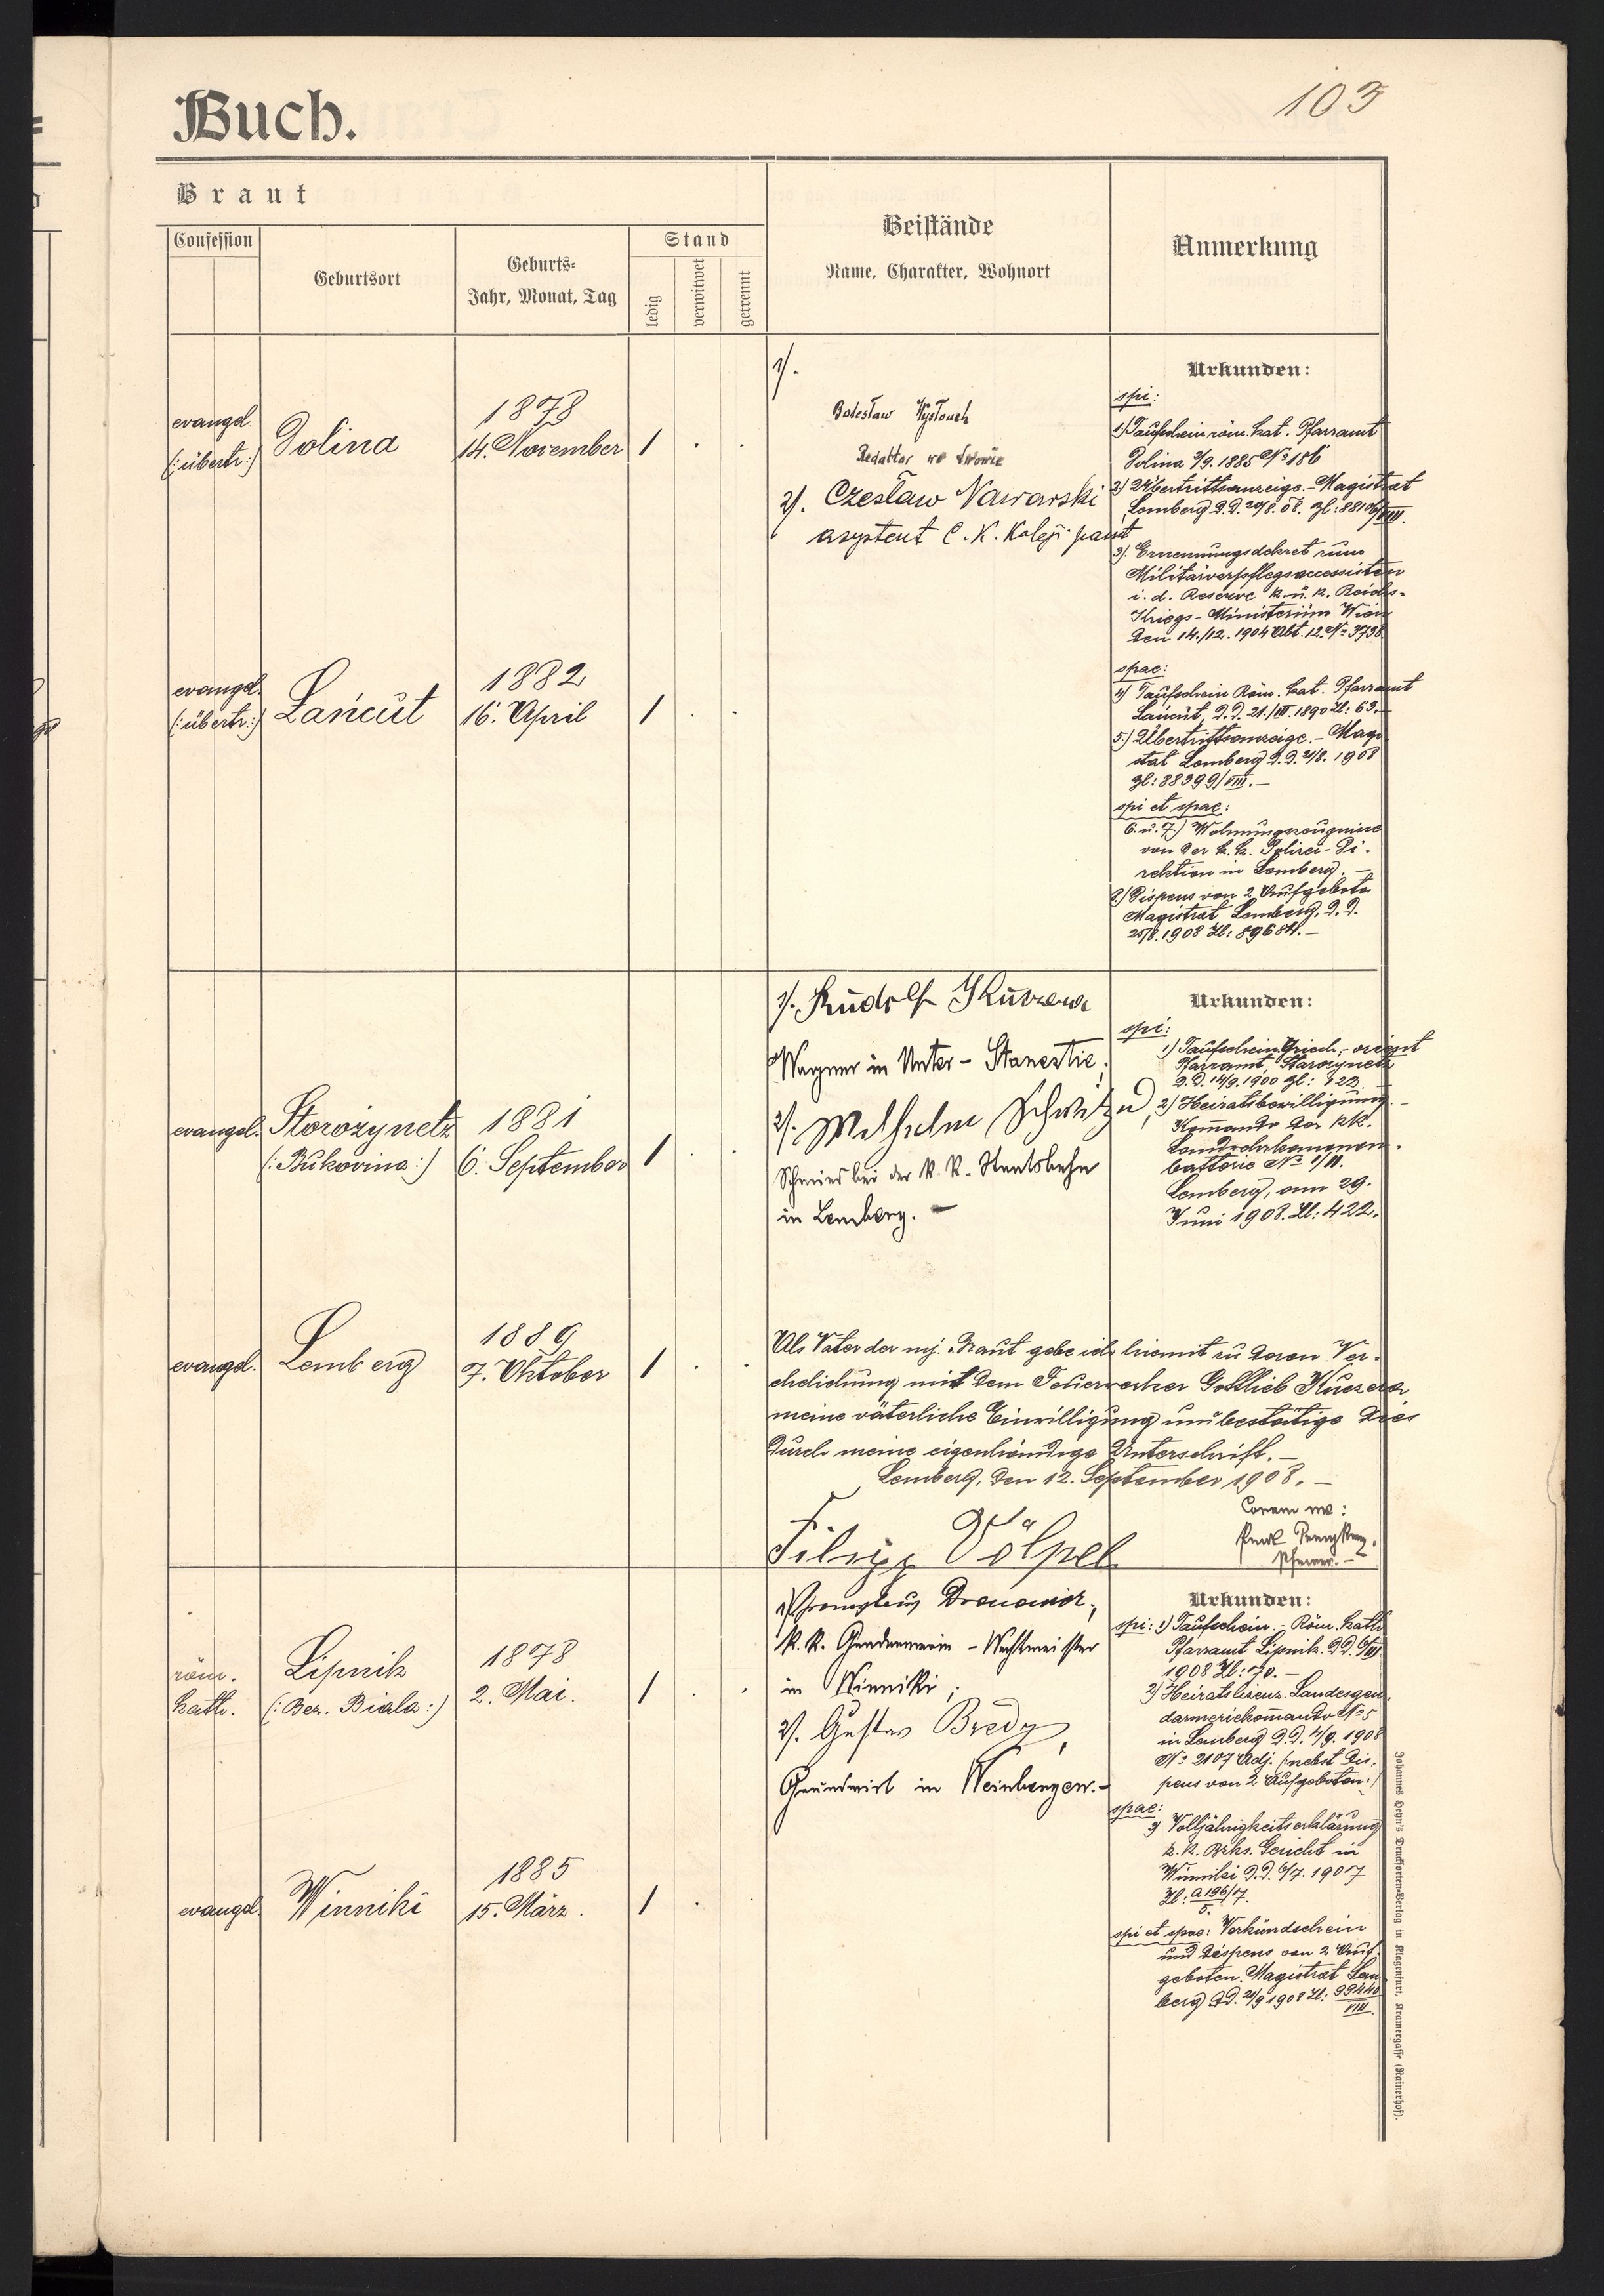 103
Buch.
Braut
Confession
Geburtsort
Geburts-
Jahr, Monat, Tag
Stand
ledig
verwitwet
getrennt
Beistände
Name, Charakter, Wohnort
Anmerkung
evangel.
(:übertr:)
Dolina
1878
14. November
1
1).
Bolesław Wysłouch
Redaktor we Lwowie
2). Czesław Nawarski
asystent C. K. Koleji państ
Urkunden:
spi:
1) Taufschein röm. kat. Pfarramt
Dolina 3/9. 1885 No 186
2) Übertrittsanzeige.- Magistrat
Lemberg D.D. 20/8. 08. Zl: 88106/VIII.
3). Ernennungsdekret zum
Militärverpflegsaccessisten
i. d. Reserve k. u. k. Reichs-
Kriegs-Ministerium Wien
den 14./12. 1904 Abt. 12. No 3738.
evangel.
(:übertr:)
Łańcut
1882
16. April
1
spae:
4) Taufschein Röm. kat. Pfarramt
Łańcut, D.D. 21./VII. 1890 Zl: 63.-
5.) Übertrittsanzeige.- Magi
strat Lemberg D.D. 21/8. 1908
Zl: 88399/VIII.-
spi et spae:
6. u. 7.) Wohnungszeugnisse
von der k. k. Polizei-Di-
rektion in Lemberg.-
8.) Dispens von 2 Aufgeboten
Magistrat Lemberg, D.D.
25/8. 1908 Zl: 89684.-
evangel.
Storożynetz
(:Bukovina:)
1881
6. September
1
1). Rudolf Kuczera
Wagner in Unter-Stanestie;
2). Wilhelm Schmitzud,
Schmied bei der k. k. Staatsbahn
in Lemberg.-
Urkunden:
spi:
1) Taufschein Griech.-orient
Pfarramt, Starozynetz
D.D. 14/9. 1900 Zl: 122.
2) Heiratsbewilligung.-
Komando der kk.
Landwehrkanonen-
batterie No 1/II.
Lemberg, am 29.
Juni 1908. Zl: 422.
evangel.
Lemberg
1889
7. Oktober
1
Als Vater der mj. Braut gebe ich hiemit zu deren Ver-
ehelichung mit dem Feuerwerker Gottlieb Kuczera
meine väterliche Einwilligung und bestätige dies
durch meine eigenhändige Unterschrift.-
Lemberg, den 12. September 1908.-
Filipp Völpel
Coram me:
Pfarrer.-
röm.
kath.
Lipnik
(:Bez. Biala:)
1878
2. Mai.
1
k. k. Gendarmerie-Wachtmeister
in Winniki;
2). Gustav Bredy,
Grundwirt in Weinbergen.-
Urkunden:
spi: 1) Taufschein.- Röm. kath
Pfarramt Lipnik. D.D. 6/VII
1908 Zl: 170.-
2) Heiratslizenz. Landesgen-
darmeriekomando No 5
in Lemberg D.D. 4/9. 1908
No 2107 Adj. (:nebst Dis-
pens von 2 Aufgeboten:)
evangel.
Winniki
1885
15. März.
1
spae:
3) Volljährigkeitserklärung
k. k. Bzks. Gericht in
Winniki D.D. 6/7. 1907
Zl: A 196/7.
5.
spi et spae: Verkündschein
und Dispens von 2 Auf-
geboten. Magistrat Lem
berg D.D. 21/9 1908 Zl: 99440
VIII.
Johannes Heyn's Drucksorten-Verlag in Klagenfurt, Kramergasse (Rainerhof).